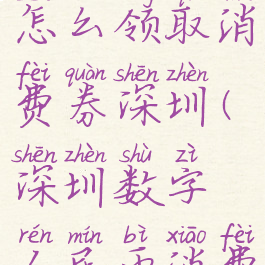 怎么领取消
fèi quàn shēn zhèn
费券深圳(
shēn zhèn shù zì
深圳数字
rén mín bì xiāo fèi
人民币消费